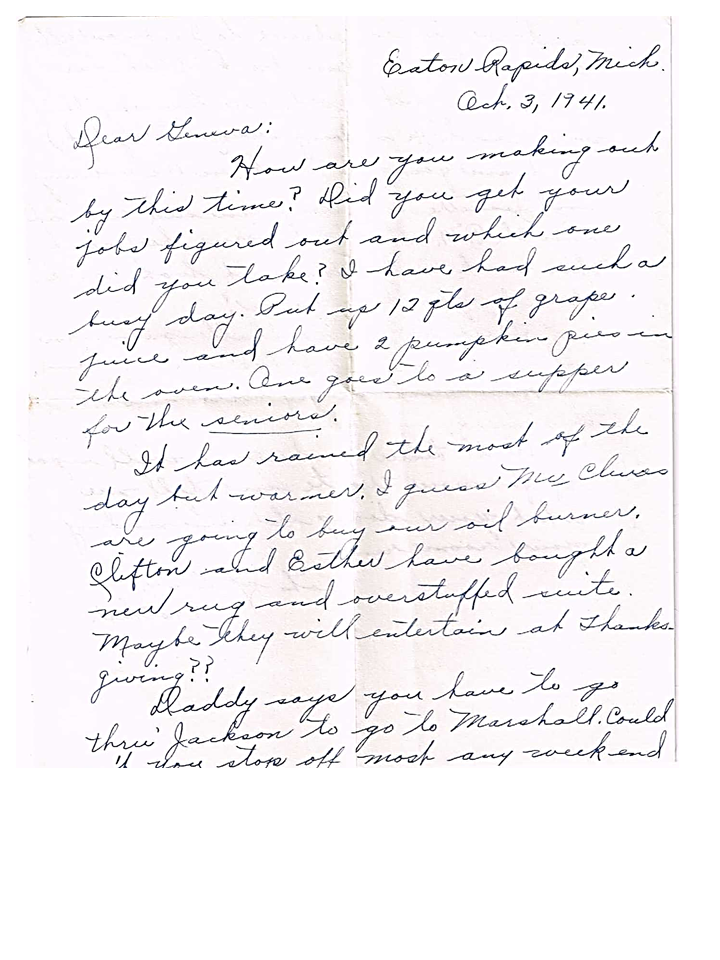 Eaton Rapids, Mich.
Oct. 3, 1941.
Dear Geneva:
How are you making out
by this time? Did you get your
jobs figured out and which one
did you take? I have had such a
busy day. Put up 12 qts of grape
juice and have 2 pumpkin pies in
the oven. One goes to a supper
for the seniors.
It has rained the most of the
day but warmer. I guess Mc Clures
are going to buy our oil burner.
Clifton and Esther have bought a
new rug and overstuffed suite.
Maybe they will entertain at Thanks-
giving??
Daddy says you have to go
thru Jackson to go to Marshall. Could
n't you stop off most any week end